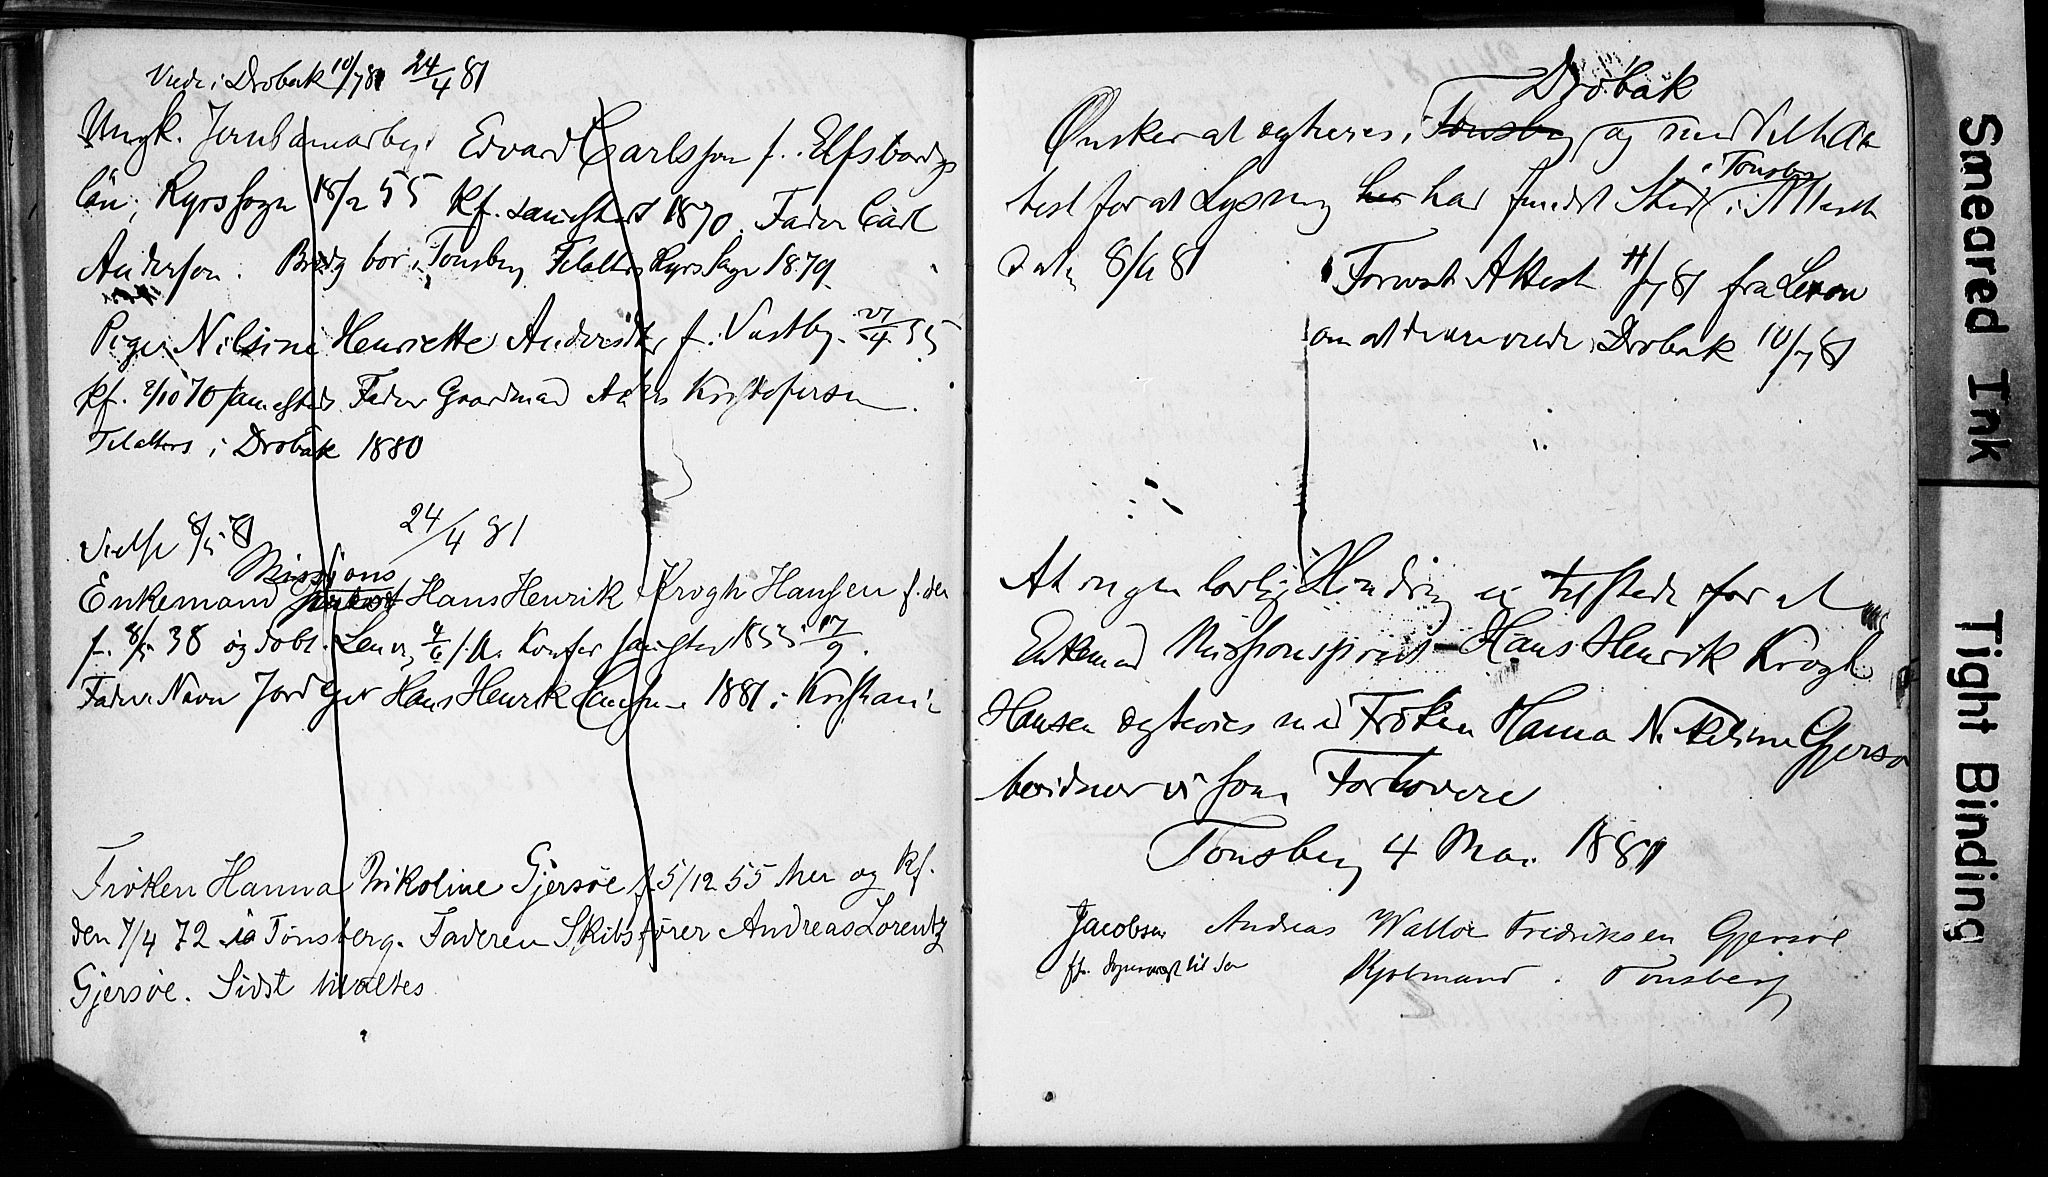 Viede i Drøbak 10/7 81 24/4 81
Ungk. Jernbanearbej. Edvard Carlsson f. Elfsborgs
län, Kyrssogn 18/2 55 Kf. sammesteds 1870. Fader Carl
Anderson. Brudg bor i Tønsberg Tilalters Kyrssogn 1879
Pigen Nilsine Henriette Andersdtr f. Vestby 27/4 55
Kf. 2/10 70 sammesteds. Fader Gaardmand Anders Kristofersen.
Tilalters i Drøbak 1880
Vielse 8/5 81 24/4 81
Missions
Enkemand Hans Henrik Krogh Hansen f. den
f. 8/5 38 og døbt. Konfer samesteds 1853 17/9.
Faders Navn Hans Henrik Hansen 1881 i Kristiania
Frøken Hanna Nikoline Gjersøe f. 5/12 55 her og kf.
den 7/4 72 i Tønsberg. Faderen Skibsfører Andreas Lorentz
Gjersøe. Sidst tilalters
Drøbak
Ønsker at egtevies i Tønsberg og med
i Tønsberg
test for at Lysning her har fundet Sted i Attest
8/6 81
Forevist Attest 11/7 81 fra
om at de ere viede i Drøbak 10/7 81
At ingen lovlig Hindring er tilstede for at
Enkemand Missionsprest Hans Henrik Krogh
Hansen egtevies med Frøken Hanna Nikoline Gjersø
bevidner vi som Forlovere
Tønsberg 4 Mai 1881
Jacobsen Andreas Walløe Fredriksen Gjersøe
Kjøbmand. Tønsberg
Smeared Ink
Tight Binding